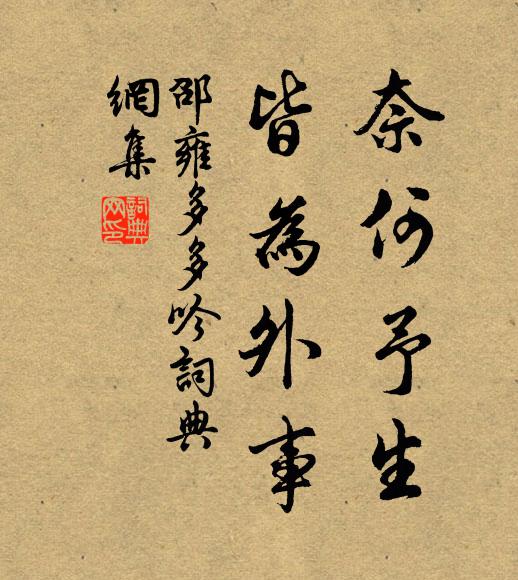 奈何予生
皆為外事
邵雍多多吟詞典
網集
詞典網印